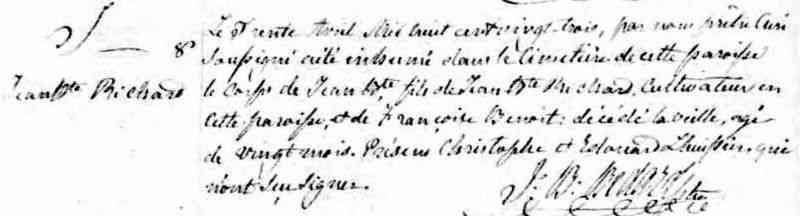 S
8e
Jean Bte Richard
Le Trente Avril Mil huit cent vingt-trois, par nous prêtre Curé
Soussigné a été inhumé dans le Cimetière de cette paroisse
le Corps de Jean Bte fils de Jean Bte Richard, Cultivateur en
cette paroisse, et de Françoise Benoit: décédé la veille, agé
de vingt mois. Présens Christophe et Edouard Lhuissier, qui
n'ont su signer.
J. B. Bédard Ptre